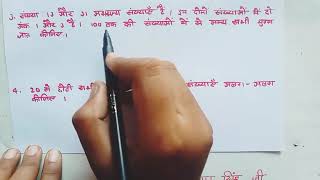 3. संख्या 13 और 31 अभाज्य संख्याएँ है । इन दोनों संख्याओं में दो
अंक 1 और 3 है । 100 तक की संख्याओं में से अन्य सभी युग्म
ज्ञात कीजिए ।
4. 20 से छोटी सभी संख्याएँ अलग-अलग
कीजिए ।